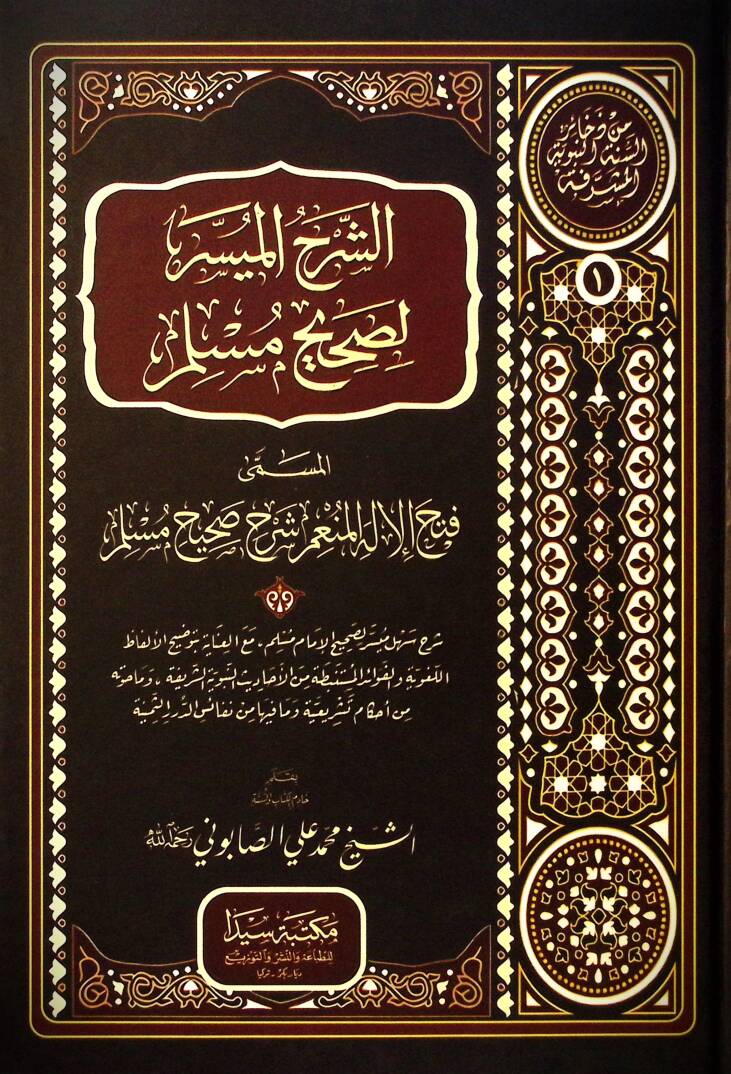 من ذخائر
السنة النبوية
المشرفة
١
الشَّرْحُ المُيَسَّر
لِصَحِيحِ مُسْلِم
المسمَّى
فتح الإله المنعم شرح صحيح مسلم
شرح سهل ميسر لصحيح الإمام مسلم، مع العناية بتوضيح الألفاظ
اللغوية والفوائد المستنبطة من الأحاديث النبوية الشريفة، وما حوته
من أحكام تشريعية وما فيها من نفائس الدرر الثمينة
بقلم
خادم الكتاب والسنة
الشيخ محمد علي الصابوني رحمه الله
مكتبة سيدا
للطباعة والنشر والتوزيع
ديار بكر - تركيا